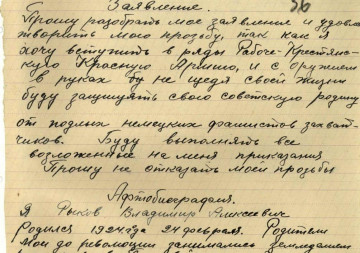 Заявление. 56
Прошу разобрать мое заявление и удовле
творить мою прозбу, так как я
хочу вступить в ряды Рабоче-Крестян-
скую Красную Армию, и с оружием
в руках не щедя своей жизни
буду защищять свою советскую родину
от подлых немецких фашистов захват-
чиков. Буду выполнять все
возложенные на меня приказания
Прошу не отказать моей прозьбы
Афтобиография.
Я Рыков Владимир Алексеевич
Родился 1924 года 24 февраля. Родители
мои до революции занимались земледелием